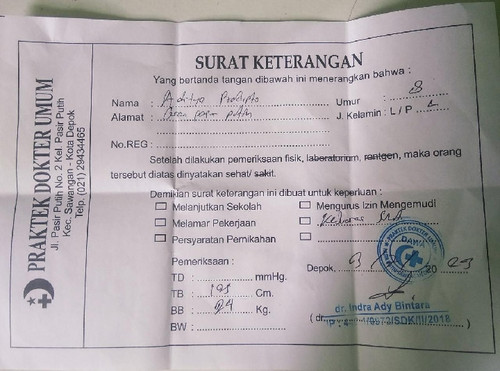 PRAKTEK DOKTER UMUM
Jl. Pasir Putih No. 2 Kel. Pasir Putih
Kec. Sawangan - Kota Depok
Telp. (021) 29434465
SURAT KETERANGAN
Yang bertanda tangan dibawah ini menerangkan bahwa :
Nama : Aditya Umur : 8
Alamat : pasir putih J. Kelamin : L / P
No.REG :
Setelah dilakukan pemeriksaan fisik, laboratorium, rantgen, maka orang
tersebut diatas dinyatakan sehat/ sakit.
Demikian surat keterangan ini dibuat untuk keperluan :
Melanjutkan Sekolah
Mengurus Izin Mengemudi
Melamar Pekerjaan
Persyaratan Pernikahan
Pemeriksaan : Depok, 20
TD : mmHg.
TB : Cm.
BB : 24 Kg.
BW :
PRAKTEK DOKTER
(dr. dr. Indra Ady Bintara )